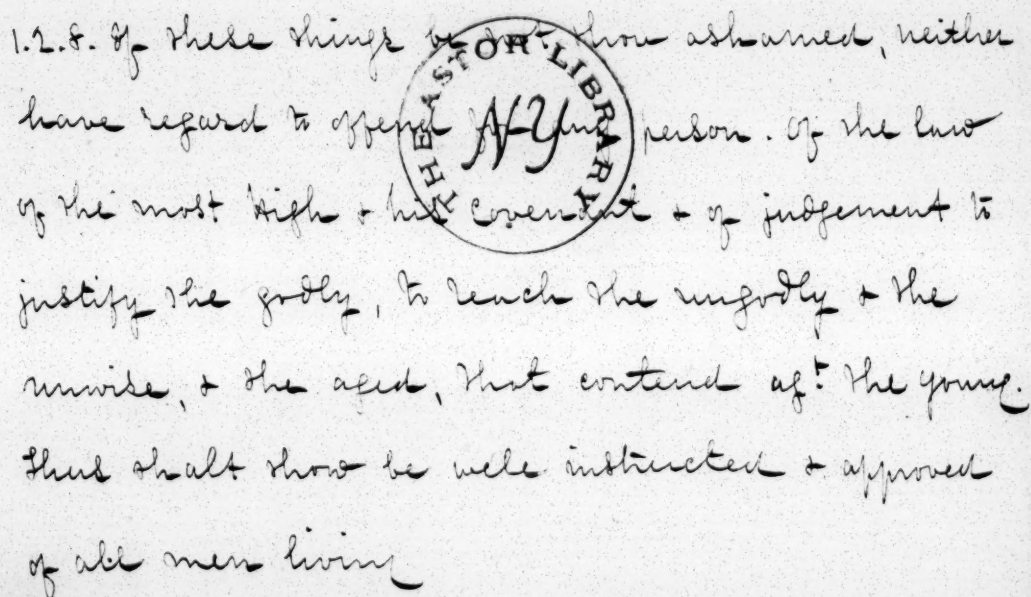 1.2.8. Of these things be not thou ashamed, neither
have regard to offend for any person. Of the law
of the most High & his covenant & of judgement to
justify the godly, to teach the ungodly & the
unwise, & the aged, that contend agt. the young.
Thus shalt thou be well instructed & approved
of all men living
THE ASTOR LIBRARY
NY